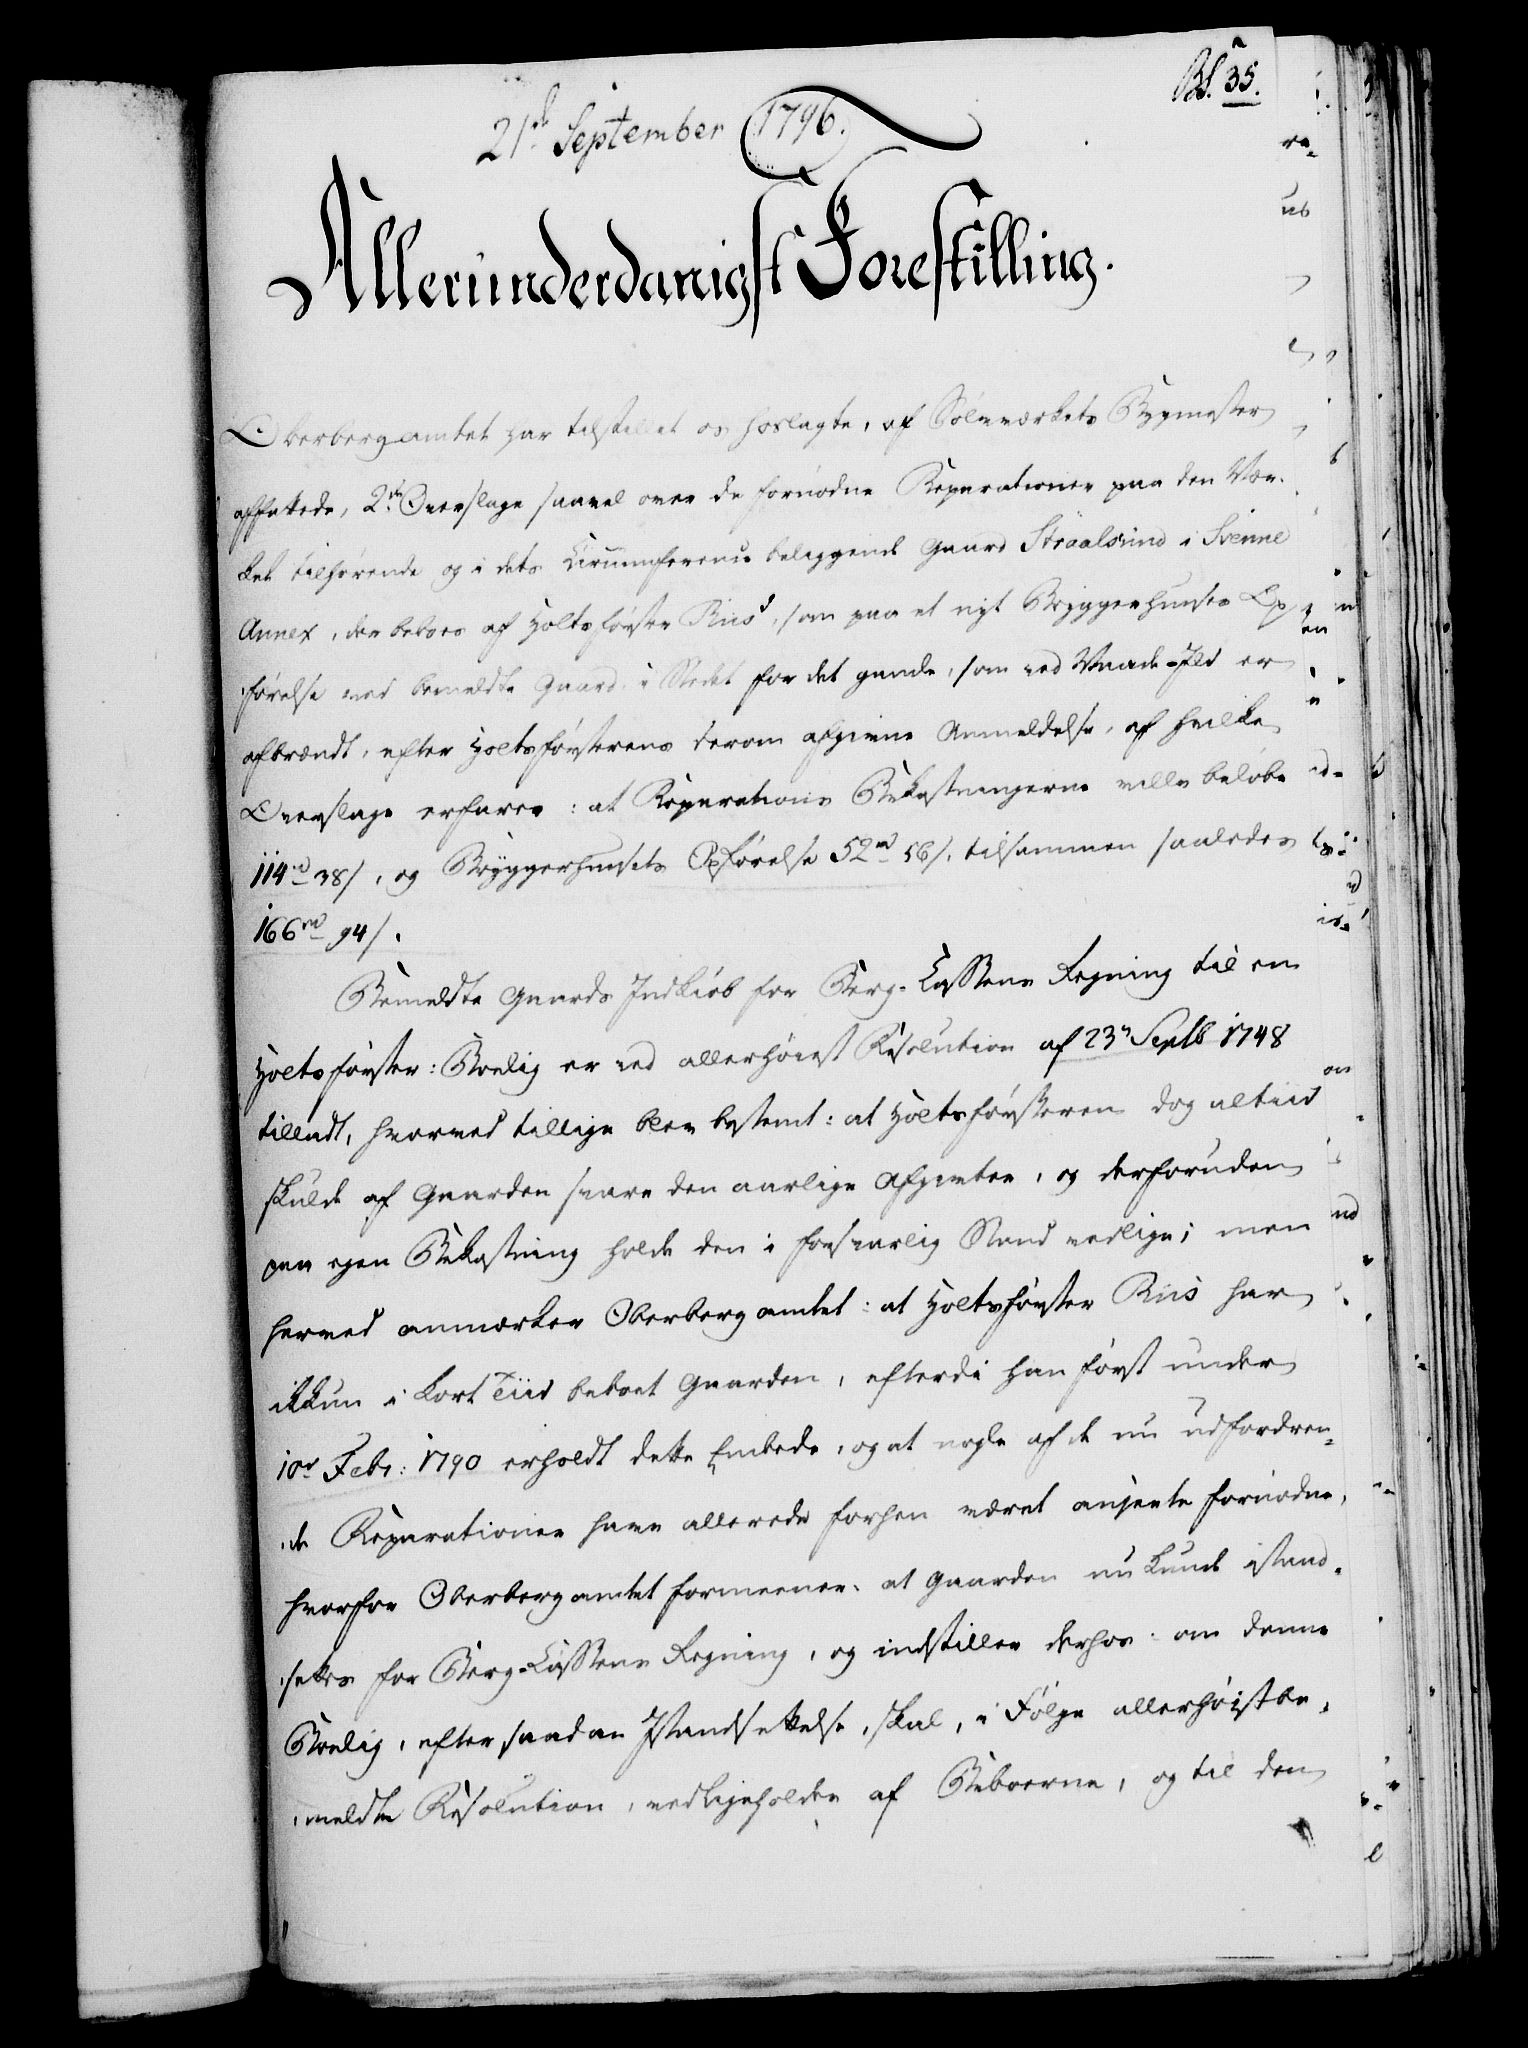 Bl. 35.
21de September 1796.
Allerunderdanigst Forestilling.
Oberbergamtet har tilstillet os hoslagte, af Sölvværkets Bygmester
affattede, 2de Overslage saavel over de fornødne Reparationer paa den Vær-
ket tilhørende og i dets Circumference beliggende Gaard Straalsund i Svenne
Annex, der beboes af Holtsförster Riis, som paa et nyt Bryggerhuuses Op-
førelse ved bemeldte Gaard i Stedet for det gamle, som ved Vaade-Ild er
afbrændt, efter Holtsförsterens derom afgivne Anmeldelse, af hvilke
Overslage erfares: at Reparations Bekostningerne ville beløbe
114 rd 38 s, og Bryggerhuusets Opførelse 52 rd 56 s, tilsammen saaledes
166 rd 94 s.
Bemeldte Gaards Indkiøb for Berg-Cassens Regning til en
Holtsförster-Boelig er ved allerhöiest Resolution af 23de Septb 1748
tilladt, hvorved tillige blev bestemt: at Holtsförsteren dog altiid
skulde af Gaarden svare den aarlige Afgivter, og derforuden
paa egen Bekostning holde den i forsvarlig Stand vedlige; men
herved anmærker Oberbergamtet: at Holtsförster Riis har
ikkun i kort Tiid beboet Gaarden, efterdi han först under
10de Febr: 1790 erholdt dette Embede, og at nogle af de nu udfordren-
de Reparationer have allerede forhen været anseete fornødne,
hvorfor Oberbergamtet formeener: at Gaarden nu kunde istand-
sættes for Berg-Cassens Regning, og indstiller derhos: om denne
Boelig, efter saadan Istandsættelse, skal, i Fölge allerhöistbe-
meldte Resolution, vedligeholdes af Beboerne, og til den